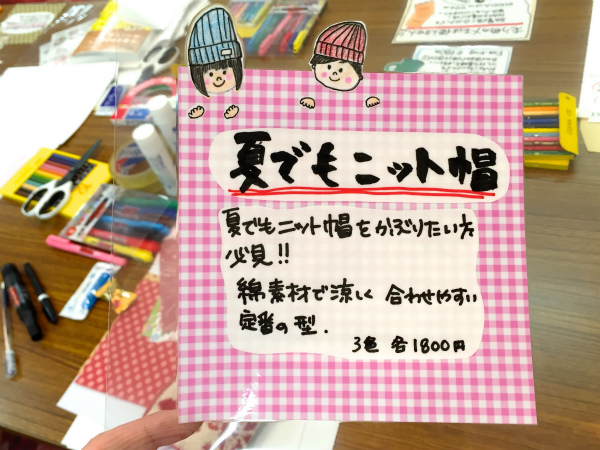 夏でもニット帽
夏でもニット帽をかぶりたい方
必見!!
綿素材で涼しく 合わせやすい
定番の型.
3色 各1800円